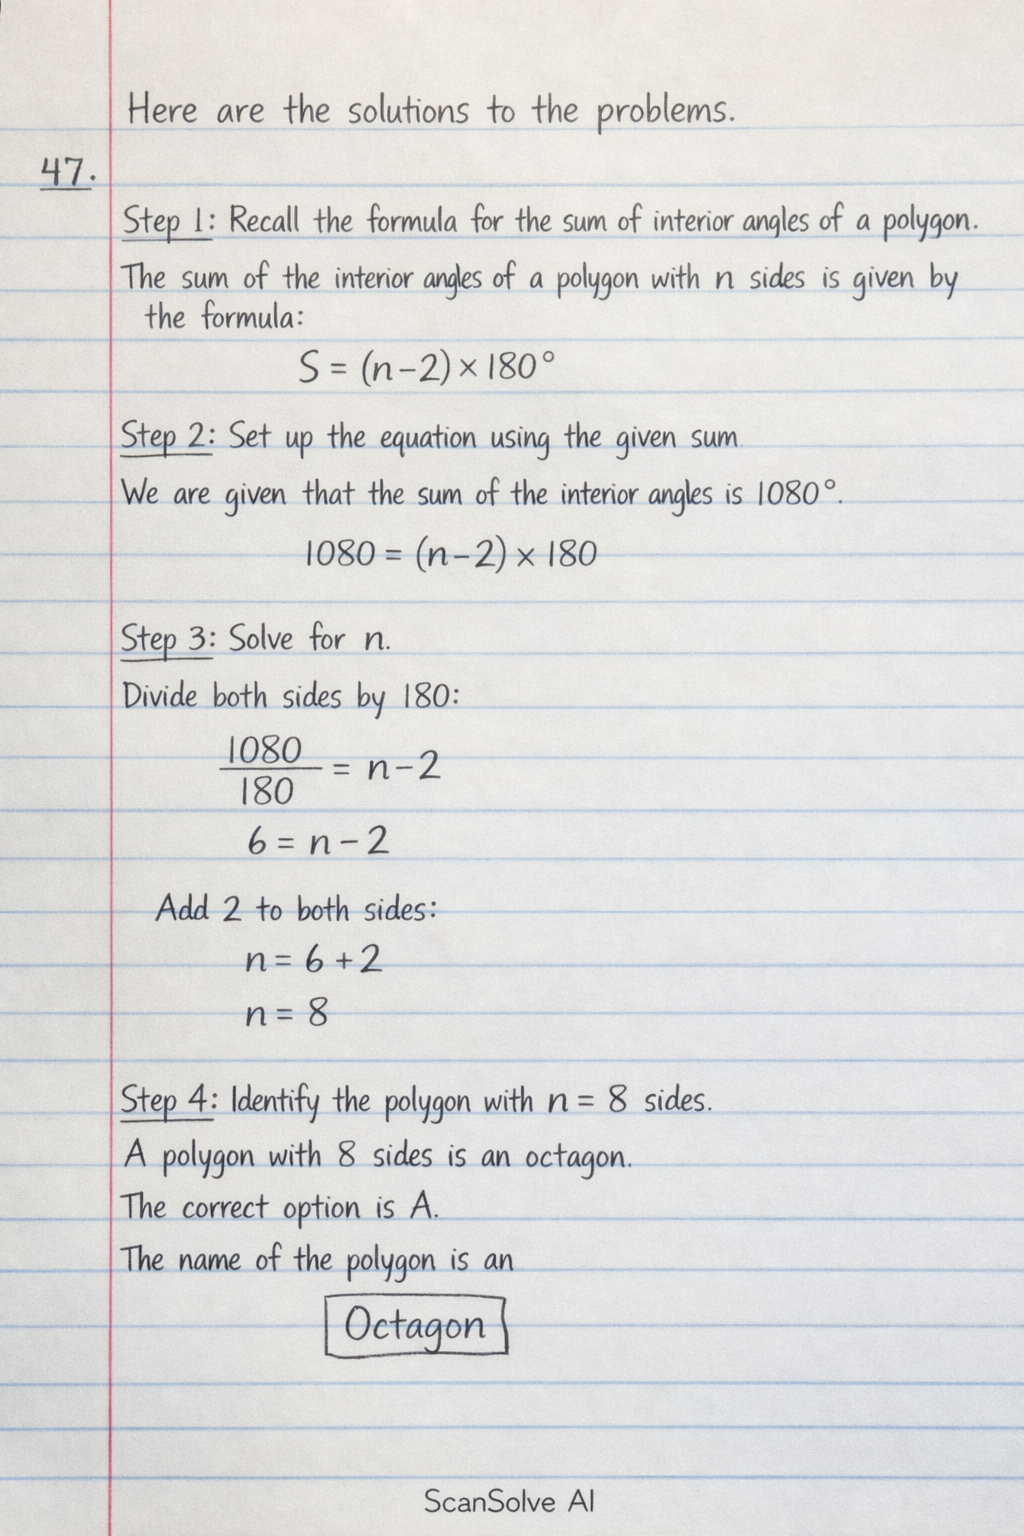 Here are the solutions to the problems.
47.
Step 1: Recall the formula for the sum of interior angles of a polygon.
The sum of the interior angles of a polygon with n sides is given by
the formula:
S = (n-2) × 180°
Step 2: Set up the equation using the given sum
We are given that the sum of the interior angles is 1080°.
1080 = (n-2) × 180
Step 3: Solve for n.
Divide both sides by 180:
1080
180
= n-2
6 = n - 2
Add 2 to both sides:
n = 6 + 2
n = 8
Step 4: Identify the polygon with n = 8 sides.
A polygon with 8 sides is an octagon.
The correct option is A.
The name of the polygon is an
Octagon
ScanSolve AI